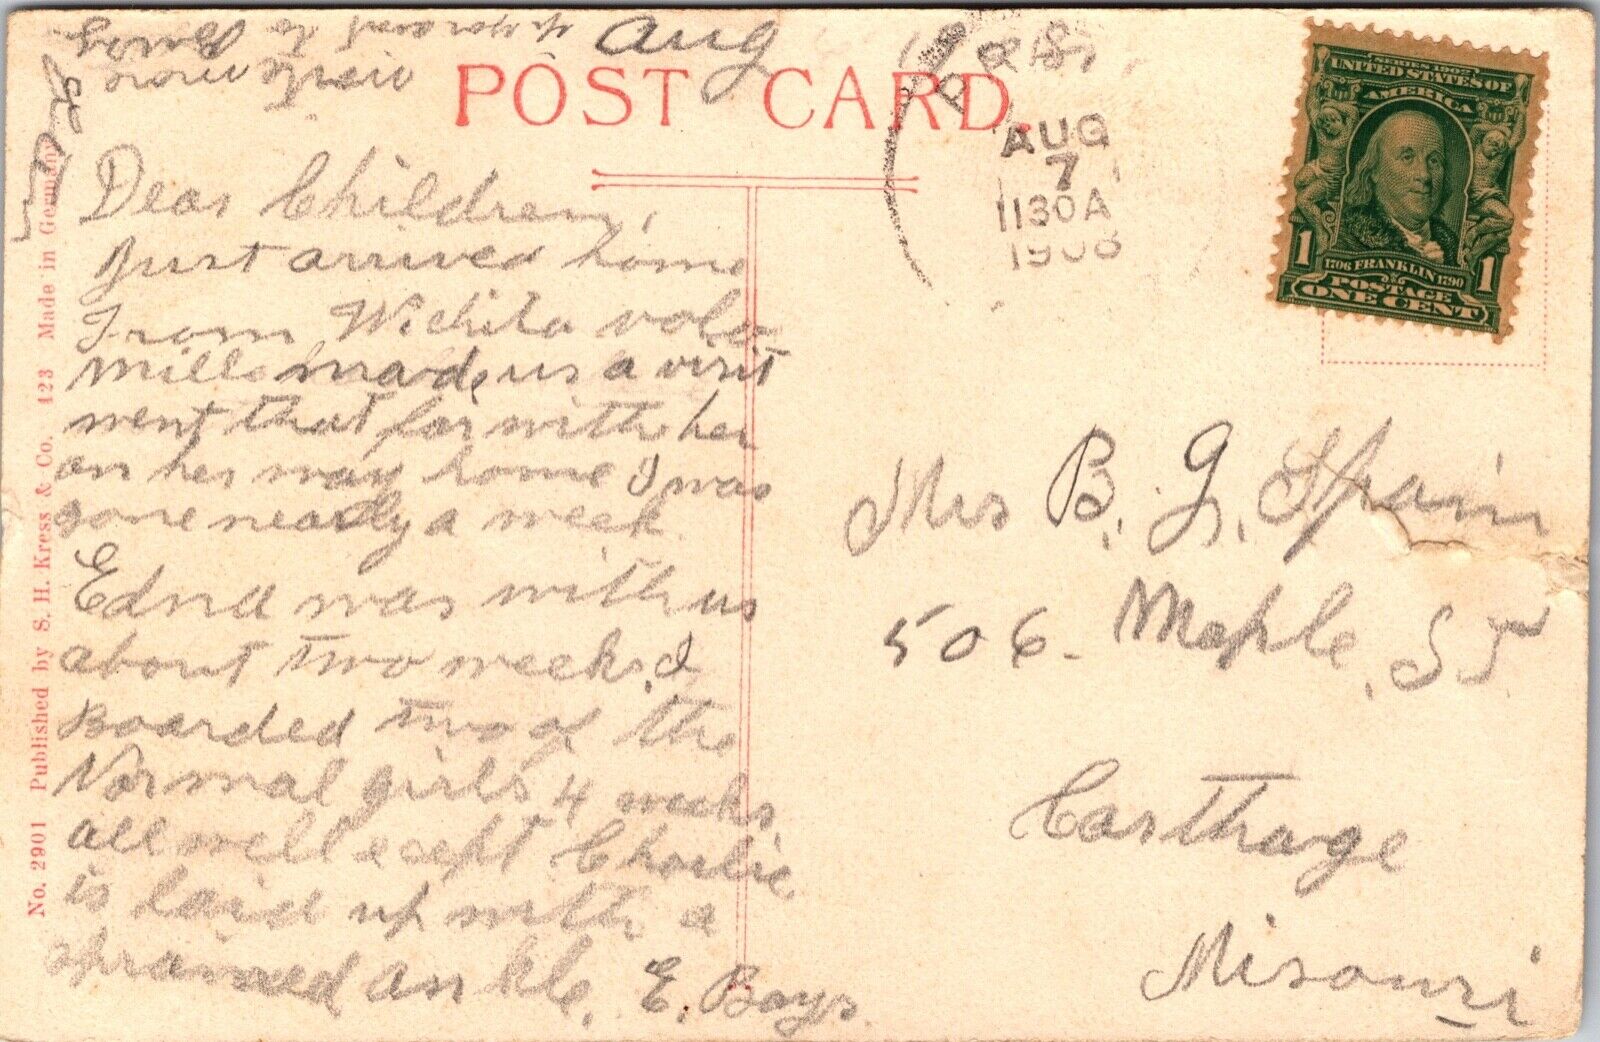 Aug
POST CARD.
AUG
7
1130A
1908
SERIES 1902
UNITED STATES OF
AMERICA
1 1
1706 FRANKLIN 1790
POSTAGE
ONE CENT
Dear Children,
Just arrived home
From Wichita
mills made us a visit
went that far with her
on her way home I was
gone nearly a week
Edna was with us
about two weeks. I
Boarded two of the
Normal girls 4 weeks.
all well ecept Charlie
is laid up with a
sprained ankle. E. Boys
Mrs B. G. Spain
506. Maple. ST
Carthage
Misouri
No. 2901 Published by S. H. Kress & Co. 423 Made in Germany